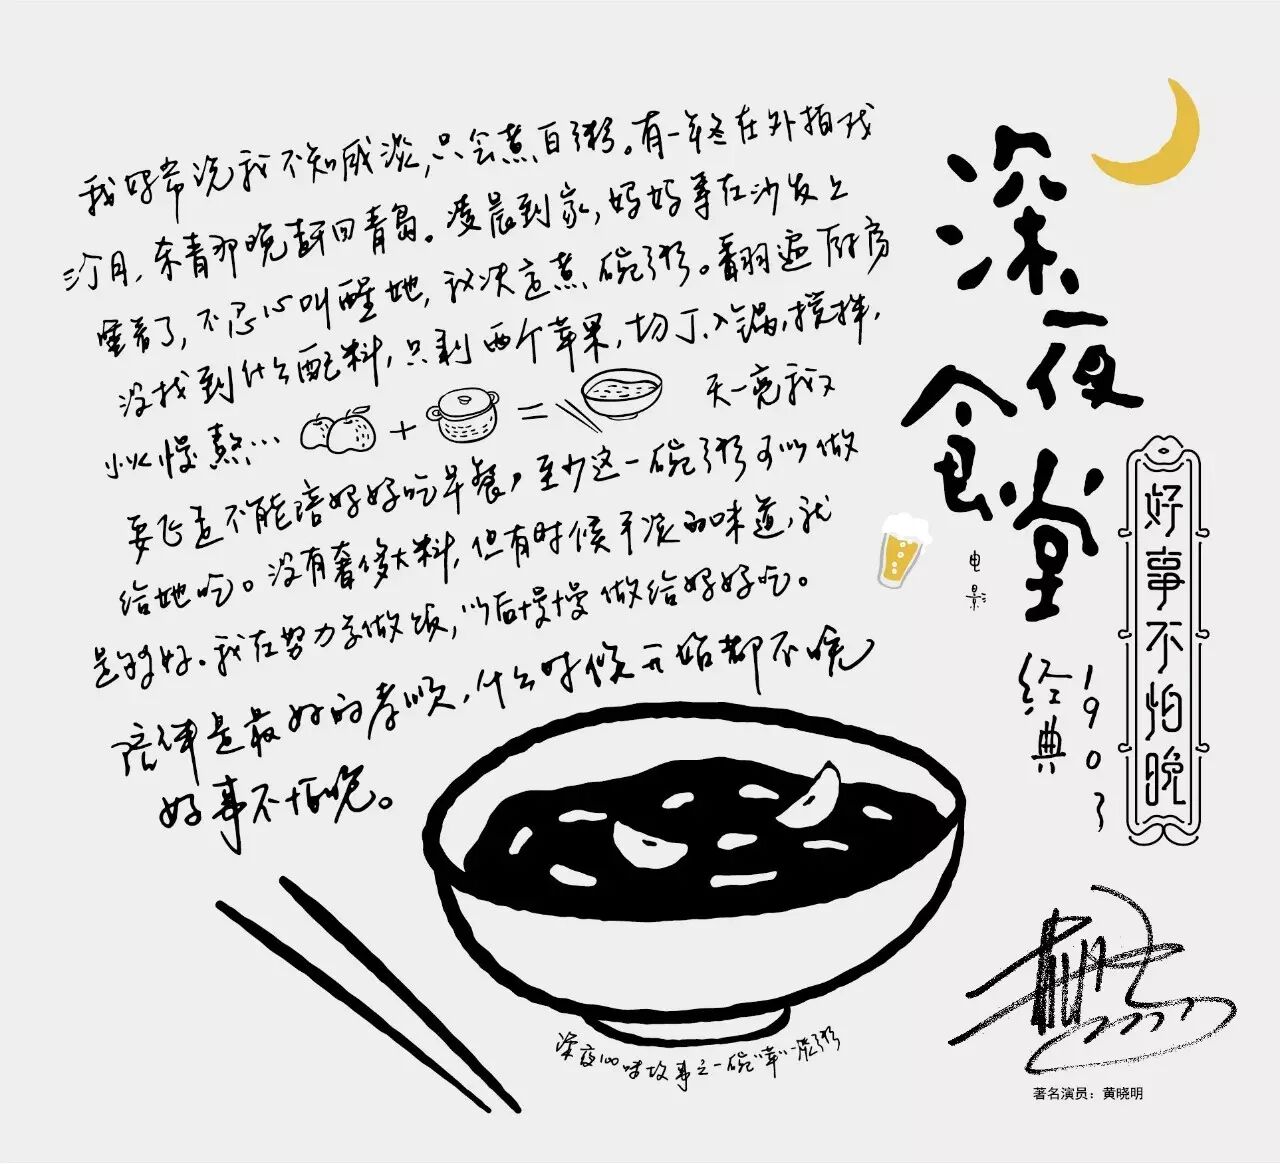 我妈常说我不知咸淡，只会煮白粥。有一年冬在外拍戏
三个月，杀青那晚赶回青岛。凌晨到家，妈妈等在沙发上
睡着了，不忍心叫醒她，我决定煮碗粥。翻遍厨房
没找到什么配料，只剩两个苹果，切丁、入锅，搅拌，
小火慢熬… + = 天一亮我又
要飞走不能陪妈妈吃早餐，至少这一碗粥可以做
给她吃。没有奢侈大料，但有时候平淡的味道，就
是够好。我在努力学做饭，以后慢慢做给妈妈吃。
陪伴是最好的孝顺，什么时候开始都不晚
好事不怕晚。
深夜食堂
电影
好事不怕晚
经典1903
深夜100味故事之一碗"苹"一碗粥
著名演员：黄晓明